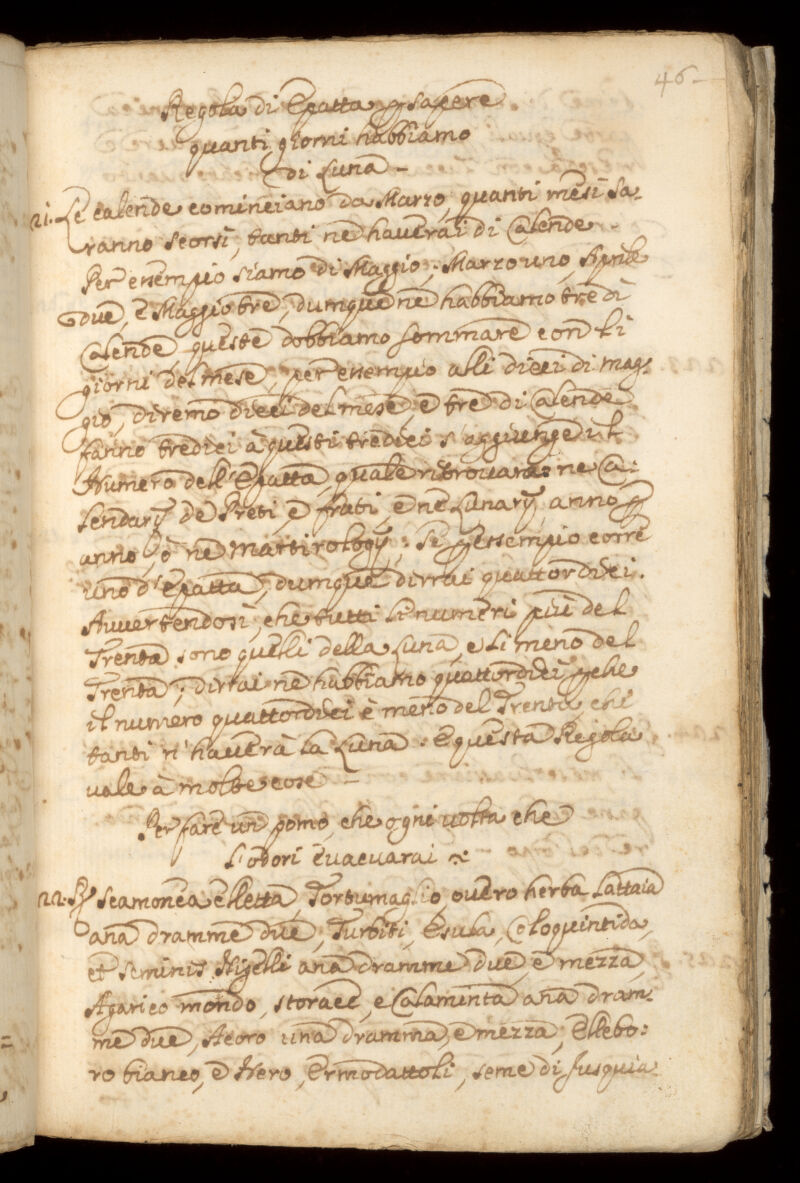 46
Regola di Epatta p sapere
quanti giorni habbiamo
di Luna -
21. Le calende cominciano da Marzo, quanti mesi sa-
ranno scorsi, tanti ne haverai di Calende
Per essempio siamo di Maggio; Marzo uno, Aprile
due, e Maggio tre, dumque ne habbiamo tre di
Calende queste dobbiamo sommare con li
giorni del mese, per essempio alli dieci di mag-
gio, diremo dieci del mese, e tre di Calende
fanno tredici à questi tredici s'aggiunge il
Numero dell'Epatta, quale ritrovarai ne Ca-
lendarij de Preti, e frati, e ne Lunarij, anno p
anno, ò ne Martirologij; Se p essempio corre
uno d'Epatta, dumque dirrai quattordici.
Avvertendosi, che tutti li numeri più del
Trenta sono quelli della Luna, e li meno del
Trenta; dirrai ne habbiamo quattordici p che
il numero quattordici è meno del Trenta, che
tanti n'haverà la Luna. E questa Regola
vale à molte cose -
Per fare un pomo, che ogni volta che
l'odori evacuarai
22. Rx Scamonea eletta, Tortumaglio, overo herba Lattaia
ana dramme due, Turbiti, Esula, Coloquintida,
et seminis Nigelli ana dramme due, e mezza,
Agarico mondo, storace, e Calaminta ana dram-
me due, Acoro una dramma, e mezza, Ellebo-
ro bianco, e Nero, Ermodattoli, seme di Jusquia